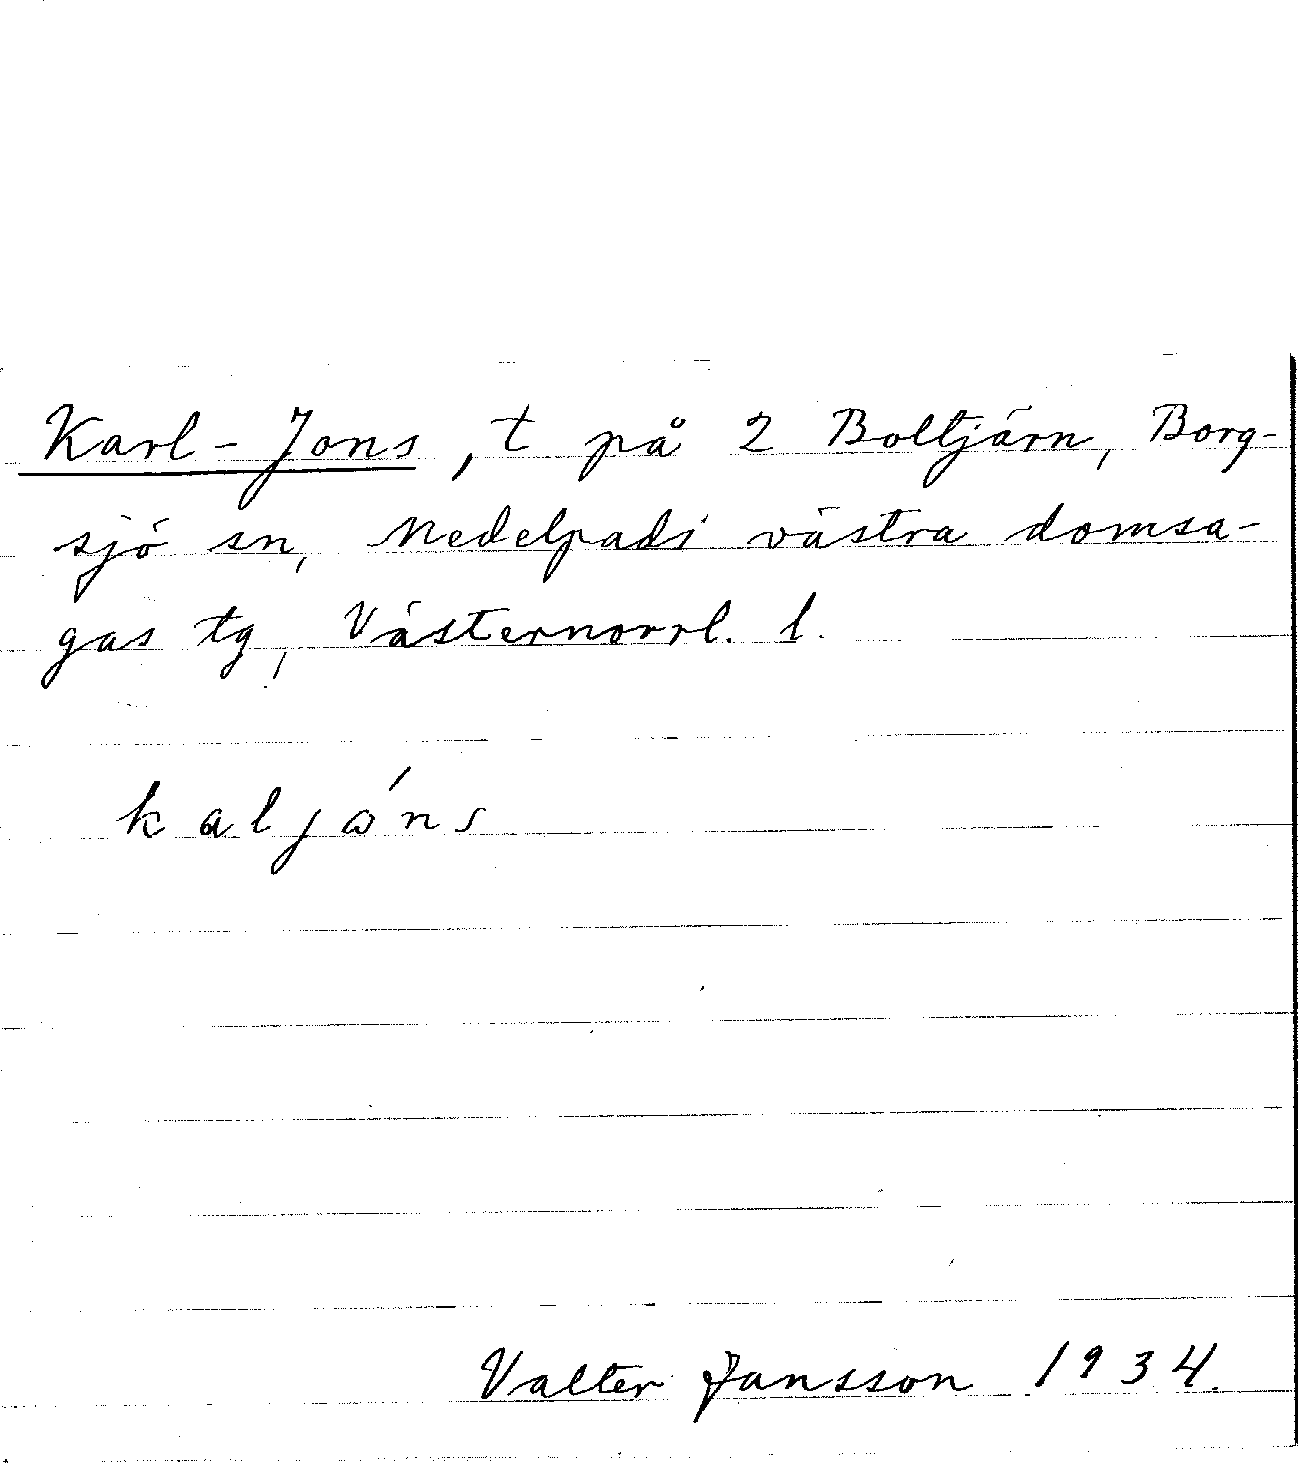 Karl-Jons, t på 2 Boltjärn, Borg-
sjö sn, Medelpads västra domsa-
gas tg, Västernorrl. l.
kaljóns
Valter Jansson 1934.